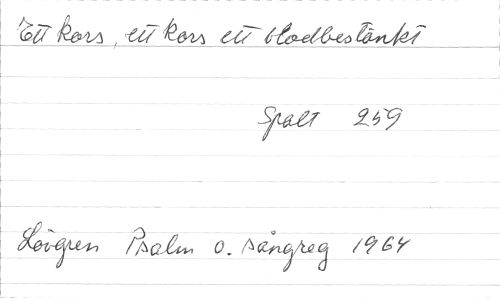 Ett kors, ett kors ett blodbestänkt
Spalt 259
Lövgren Psalm o. sångreg 1964